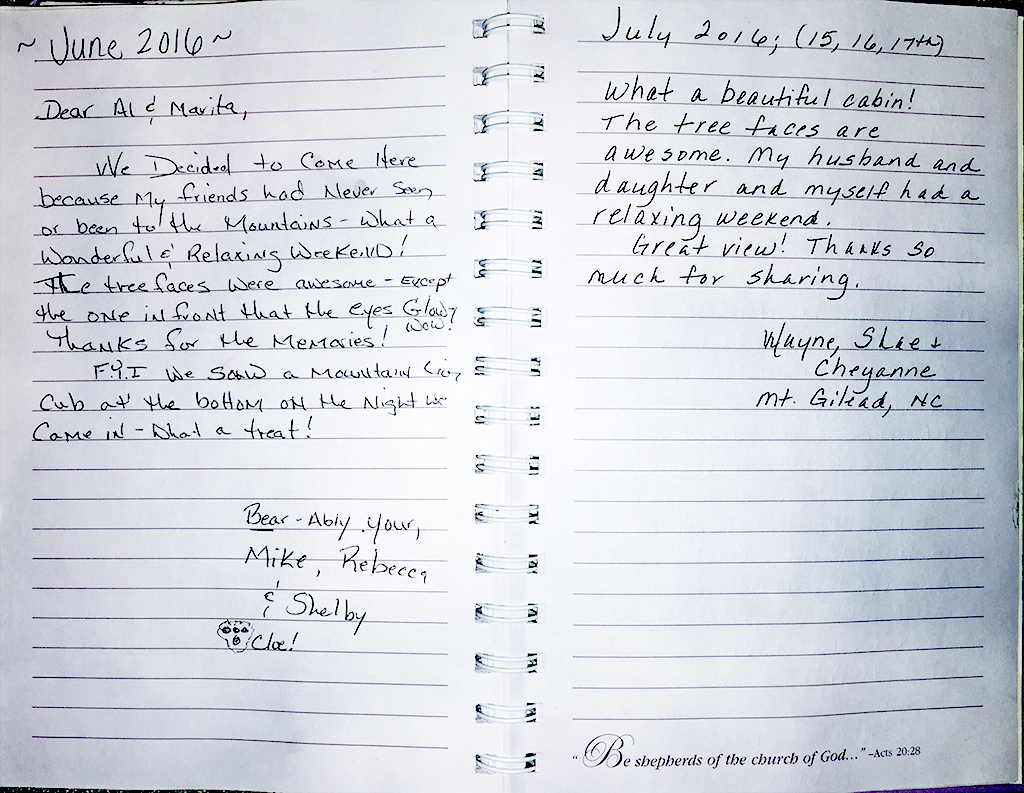 ~ June 2016 ~
Dear Al & Marita,
We Decided to Come Here
because My friends had Never Seen
or been to the Mountains - What a
Wonderful & Relaxing Weekend!
The tree faces were awesome - Except
the one in front that the eyes Glow,
wow!
Thanks for the Memories!
F.Y.I We Saw a Mountain Lion
Cub at the bottom on the Night We
Came in - What a treat!
Bear - Ably your,
Mike, Rebecca
& Shelby
Cloe!
July 2016; (15, 16, 17th)
What a beautiful cabin!
The tree faces are
awesome. My husband and
daughter and myself had a
relaxing weekend.
Great view! Thanks so
much for sharing.
Wayne, Shae +
Cheyanne
Mt. Gilead, NC
"Be shepherds of the church of God..." –Acts 20:28